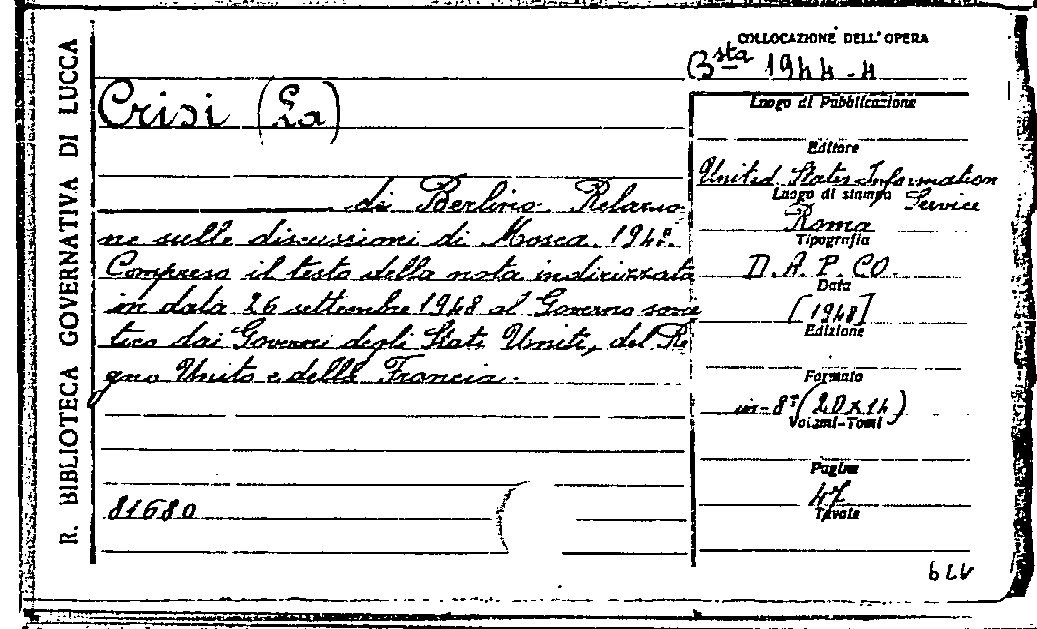 R. BIBLIOTECA GOVERNATIVA DI LUCCA
COLLOCAZIONE DELL'OPERA
Bsta 1944-4
Crisi (La)
di Berlino Relazio
ne sulle discussioni di Mosca. 1948.
Compreso il testo della nota indirizzata
in data 26 settembre 1948 al Governo sovie
tico dai Governi degli Stati Uniti, del Re
gno Unito e della Francia.
81680
Luogo di Pubblicazione
Editore
United States Information
Service
Luogo di stampa
Roma
Tipografia
D.A.P.CO.
Data
[1948]
Edizione
Formato
in-8° (20x14)
Volumi-Tomi
Pagine
47
Tavole